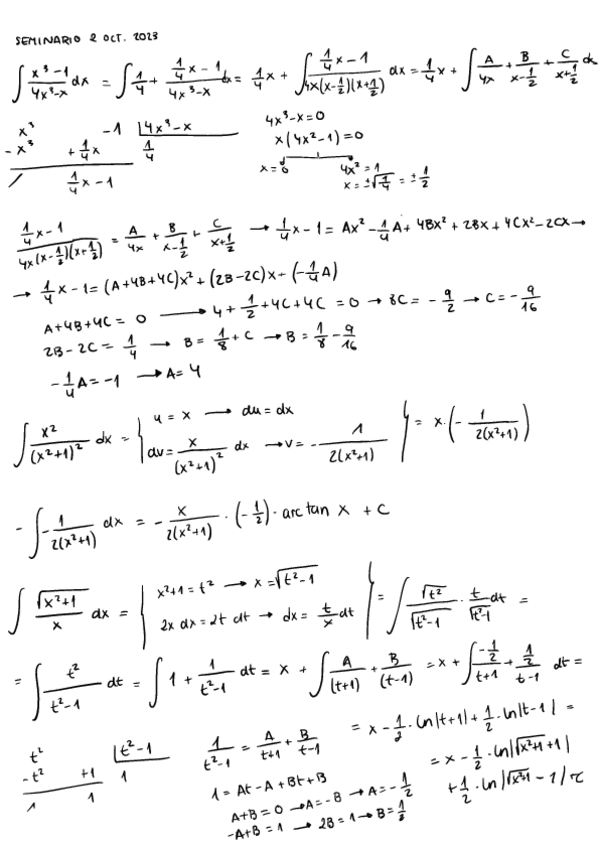 SEMINARIO 2 OCT. 2023
∫ (x³-1)/(4x³-x) dx = ∫ 1/4 + (1/4 x - 1)/(4x³-x) dx = 1/4 x + ∫ (1/4 x - 1)/(4x(x-1/2)(x+1/2)) dx = 1/4 x + ∫ A/4x + B/(x-1/2) + C/(x+1/2) dx
x³ -1 | 4x³-x
-x³ + 1/4 x 1/4
/ 1/4 x - 1
4x³-x=0
x(4x²-1)=0
x=0 4x²=1
x=±√(1/4) = ±1/2
(1/4 x - 1)/(4x(x-1/2)(x+1/2)) = A/4x + B/(x-1/2) + C/(x+1/2) → 1/4 x - 1 = Ax² - 1/4 A + 4Bx² + 2Bx + 4Cx² - 2Cx →
→ 1/4 x - 1 = (A+4B+4C)x² + (2B-2C)x + (-1/4 A)
A+4B+4C = 0 → 4 + 1/2 + 4C + 4C = 0 → 8C = -9/2 → C = -9/16
2B-2C = 1/4 → B = 1/8 + C → B = 1/8 - 9/16
-1/4 A = -1 → A = 4
∫ x²/(x²+1)² dx = { u = x → du = dx
dv = x/(x²+1)² dx → v = - 1/(2(x²+1)) } = x · (- 1/(2(x²+1)))
- ∫ - 1/(2(x²+1)) dx = - x/(2(x²+1)) · (-1/2) · arc tan x + C
∫ √(x²+1)/x dx = { x²+1 = t² → x = √(t²-1)
2x dx = 2t dt → dx = t/x dt } = ∫ √t²/√(t²-1) · t/√(t²-1) dt =
= ∫ t²/(t²-1) dt = ∫ 1 + 1/(t²-1) dt = x + ∫ A/(t+1) + B/(t-1) = x + ∫ (-1/2)/(t+1) + (1/2)/(t-1) dt =
t² | t²-1
-t² +1 1
/ 1
1/(t²-1) = A/(t+1) + B/(t-1)
1 = At - A + Bt + B
A+B = 0 → A = -B → A = -1/2
-A+B = 1 → 2B = 1 → B = 1/2
= x - 1/2 · ln|t+1| + 1/2 · ln|t-1| =
= x - 1/2 · ln|√(x²+1) + 1|
+ 1/2 · ln|√(x²+1) - 1| + C